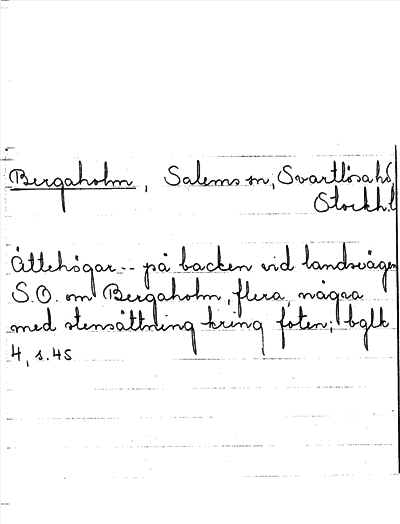 Bergaholm, Salems sn, Svartlösa hd
Stockh.l
Ättehögar -- på backen vid landsvägen
S.O. om Bergaholm, flera, några
med stensättning kring foten; bglk
4, s. 45